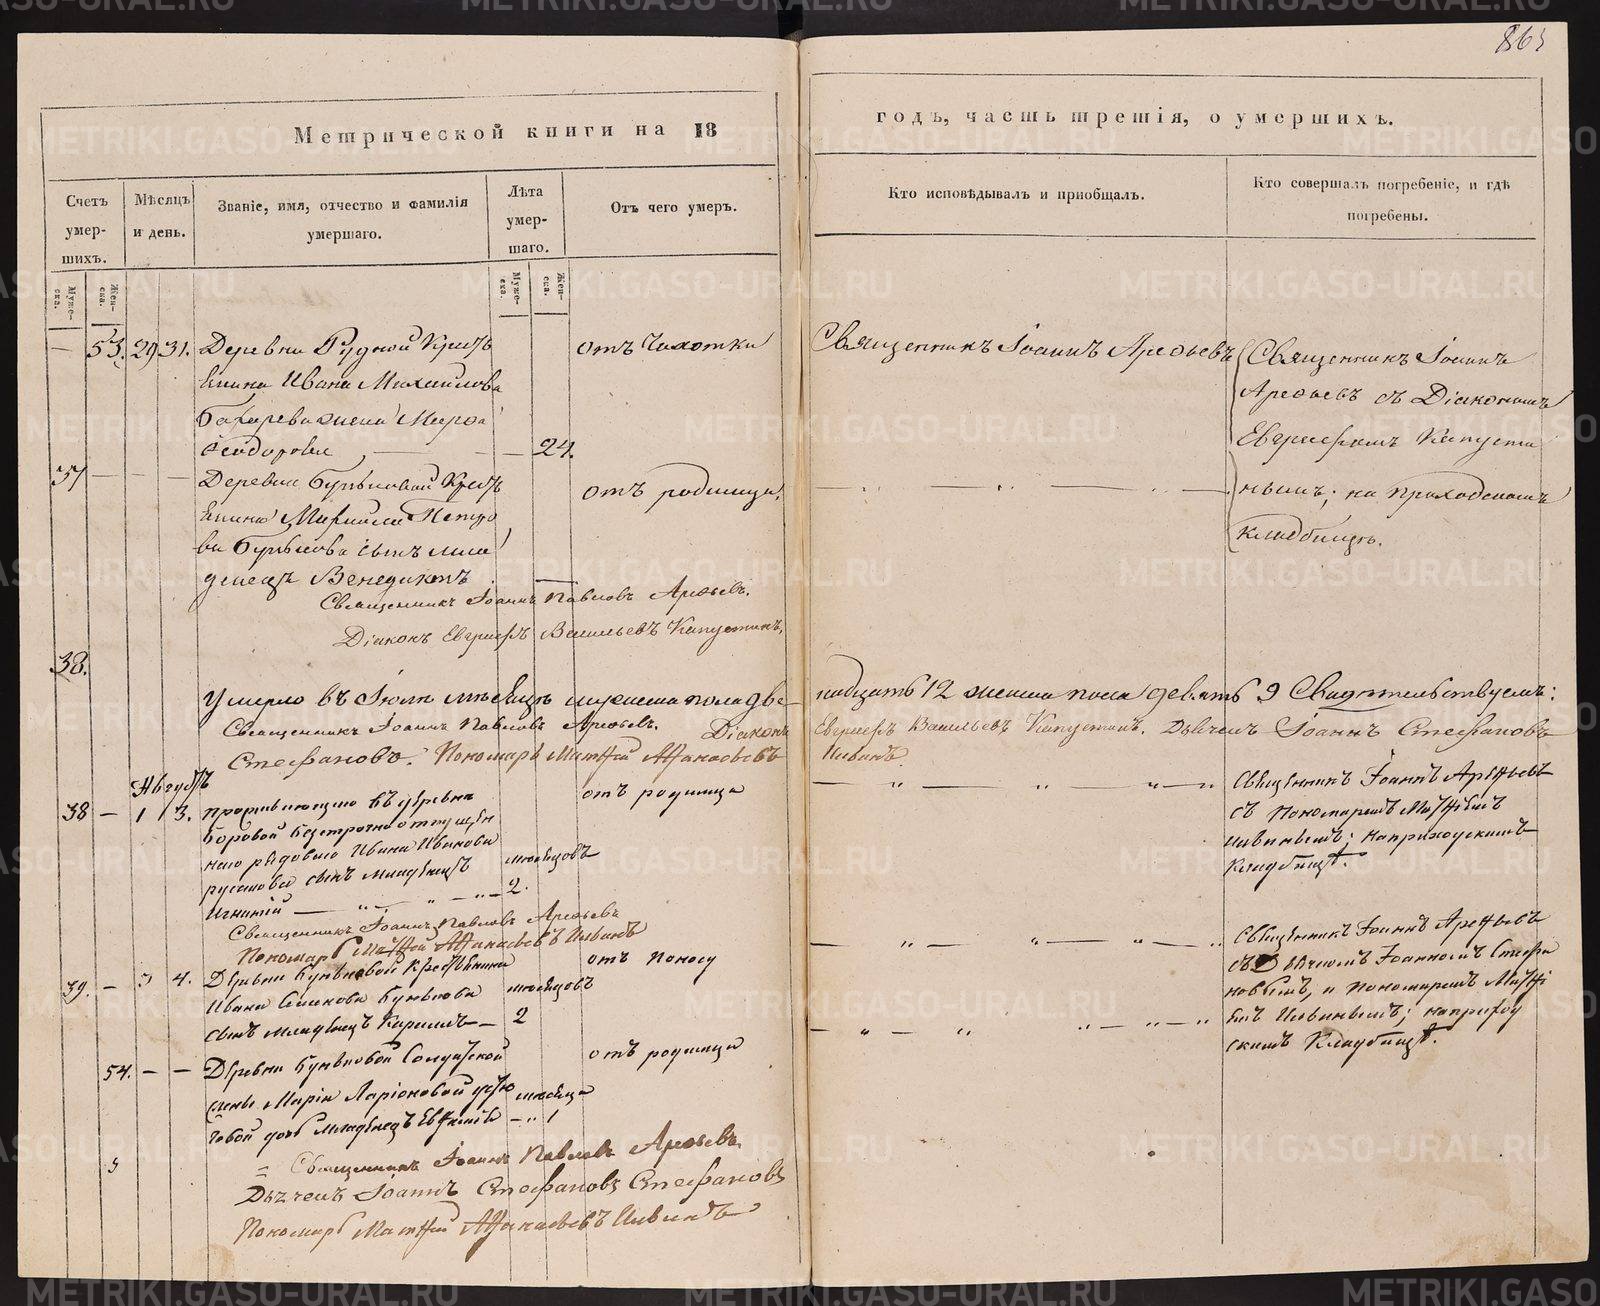 865
Метрической книги на 18
годъ, часть третія, о умершихъ.
Счетъ умер-шихъ.
Мѣсяцъ и день.
Званіе, имя, отчество и фамилія умершаго.
Лѣта умер-шаго.
Отъ чего умеръ.
Кто исповѣдывалъ и пріобщалъ.
Кто совершалъ погребеніе, и гдѣ погребены.
Муже-ска.
Жен-ска.
Муже-ска.
Жен-ска.
53. 29 31. Деревни Рудной Кресть
янина Ивана Михаилова
жена Марѳа
Ѳеодорова 24.
отъ Чахотки
Священникъ Іоаннъ Арефьевъ
Священникъ Іоаннъ
Арефьевъ съ Діакономъ
Евграфомъ Капусти
нымъ; на приходскомъ
кладбищѣ.
37 Деревни Бунькова Кресть
янина Михаила Петро
ва Бунькова сынъ мла
денецъ Венедиктъ
отъ родимца
Священникъ Іоаннъ Павловъ Арефьевъ.
Діаконъ Евграфъ Васильевъ Капустинъ.
38.
Умерло въ Іюлѣ мѣсяцѣ мужеска пола две-
надцать 12 женска пола девять 9 Свидѣтельствуемъ:
Священникъ Іоаннъ Павловъ Арефьевъ. Діаконъ
Евграфъ Васильевъ Капустинъ. Дьячекъ Іоаннъ Стефановъ
Стефановъ. Пономарь Матѳей Аѳанасьевъ
Ильинъ.
Августъ
38 — 1 3. проживающаго въ деревни
Боровой безсрочно отпущен
наго рядоваго Ивана Иванова
русанова сынъ младенецъ
Игнатій
мѣсяцовъ
2.
отъ родимца
Священникъ Іоаннъ Арефьевъ
съ Пономаремъ Матѳіемъ
Ильинымъ; на приходскомъ
Кладбищѣ.
Священникъ Іоаннъ Павловъ Арефьевъ
Пономарь Матѳей Аѳанасьевъ Ильинъ
39. — 3 4. Деревни Буньковой Крестьянина
Ивана Бунькова
сынъ младенецъ Кирилъ
мѣсяцовъ
2
отъ поносу
Священникъ Іоаннъ Арефьевъ
съ Дьячкомъ Іоанномъ Стефа
новымъ, и пономаремъ Матѳі
емъ Ильинымъ; на приход
скомъ Кладбищѣ.
54. — — Деревни Буньковой Солдатской
Маріи Ларіоновой
дочь младенецъ Евфимія
мѣсяца
1
отъ родимца
Священникъ Іоаннъ Павловъ Арефьевъ
Дьячекъ Іоаннъ Стефановъ Стефановъ
Пономарь Матѳей Аѳанасьевъ Ильинъ
METRIKI.GASO-URAL.RU